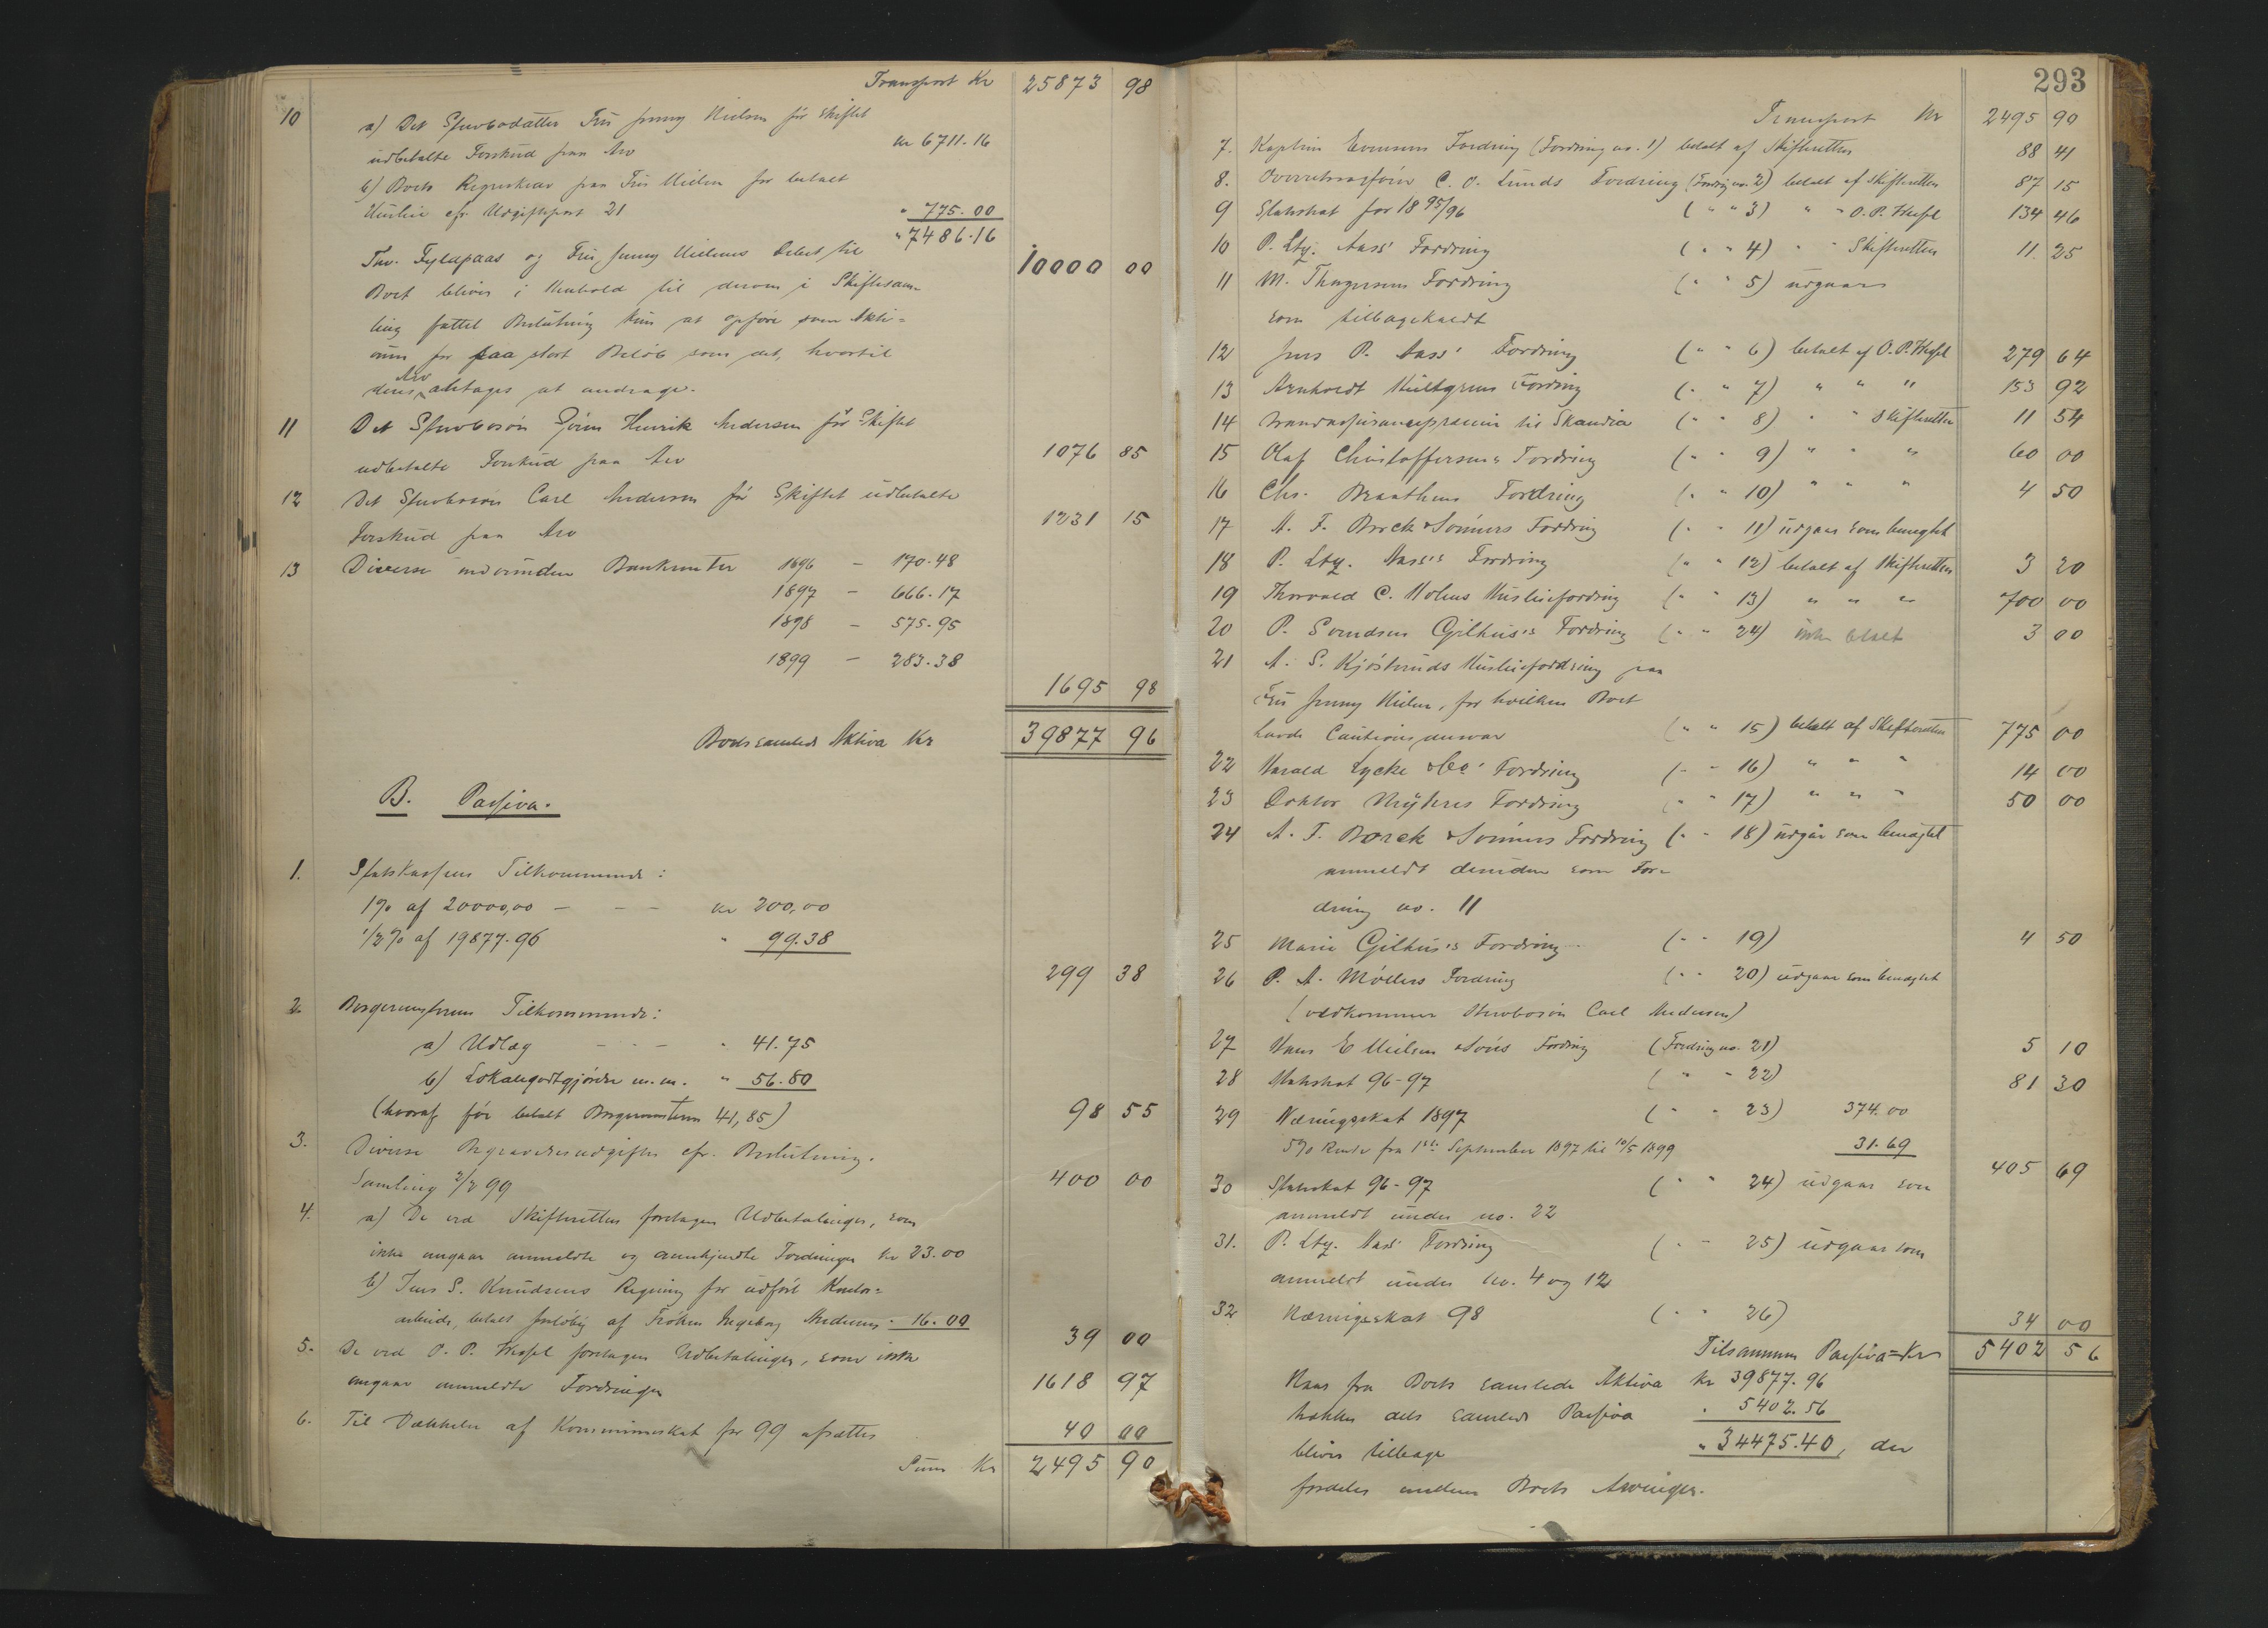 Transport Kr 25873 98
10 a) Det Stervbodatter Fru Jenny Nielsen før Skiftet
udbetalte Forskud paa Arv kr 6711.16
b) Boets Regreskrav paa Fru Nielsen for betalt
Husleie cfr. Udgiftspost 21 " 775.00
" 7486.16
Tho. Fyldpaas og Fru Jenny Nielsens Debet til 10000 00
Boet bliver i Henhold til derom i Skiftesam-
ling fattet Beslutning kun at opføre som Akti-
vum for saa stort Beløb som det, hvortil
deres Arv antages at andrage.
11 Det Stervbosøn Jørin Henrik Andersen før Skiftet
udbetalte Forskud paa Arv 1076 85
12 Det Stervbosøn Carl Andersen før Skiftet udbetalte
Forskud paa Arv 1231 15
13 Diverse indvundne Bankrenter 1896 — 170.48
1897 — 666.17
1898 — 575.95
1899 — 283.38
1695 98
Boets samlede Aktiva Kr 39877 96
B. Passiva.
1. Statskassens Tilkommende:
1% af 20000,00 — — — kr 200,00
1/2% af 19877.96 " 99.38
299 38
2. Borgermesterens Tilkommende:
a) Udlæg - - - " 41.75
b) Lokalegodtgjørelse m.m. " 56.80
(hvoraf før betalt Borgermesteren 41,85) 98 55
3. Diverse Begravelsesudgifter cfr. Beslutning.
Samling 2/2 99 400 00
4. a) De ved Skifteretten foretagne Udbetalinger, som
ikke angaar anmeldte og anerkjendte Fordringer kr 23.00
b) Jens S. Knudsens Regning for udført Kontor-
arbeide, betalt foreløbig af Frøken Ingeborg Andersen " 16.00
39 00
5. De ved O. P. Wessel foretagne Udbetalinger, som ikke
angaar anmeldte Fordringer 1618 97
6. Til Dækkelse af Kommuneskat for 99 afsættes 40 00
Sum Kr 2495 90
293
Transport Kr 2495 90
7. Kaptein Evensens Fordring (Fordring no. 1) betalt af Skifteretten 88 41
8. Overretssagfører C. O. Lunds Fordring (Fordring no. 2) betalt af Skifteretten 87 15
9 Statsskat for 1895/96 (" " 3) " " O. P. Wessel 134 46
10 P. Ltz. Aass' Fordring (" " 4) " " Skifteretten 11 25
11 M. Thygesens Fordring (" " 5) udgaar
som tilbagekaldt
12 Jens P. Aass' Fordring (" " 6) betalt af O. P. Wessel 279 64
13 Arnholdt Hultgrens Fordring (" " 7) " " " 153 92
14 Brandassurancepræmie til Skandia (" " 8) " " Skifteretten 11 54
15 Olaf Christoffersens Fordring (" " 9) " " " 60 00
16 Chr. Braathens Fordring (" " 10) " " " 4 50
17 A. F. Borck & Sønners Fordring (" " 11) udgaar som benegtet
18 P. Ltz. Aass's Fordring (" " 12) betalt af Skifteretten 3 20
19 Thorvald C. Holms Husleiefordring (" " 13) " " " 700 00
20 P. Svendsen Gilhus's Fordring (" " 24) ikke betalt 3 00
21 A. S. Kjøsteruds Husleiefordring paa
Fru Jenny Nielsen, for hvilken Boet
havde Cautionsansvar (" " 15) betalt af Skifteretten 775 00
22 Harald Lycke & Co' Fordring (" " 16) " " " 14 00
23 Doktor Myhres Fordring (" " 17) " " " 50 00
24 A. F. Borck & Sønners Fordring (" " 18) udgår som benægtet
anmeldt desuden som For-
dring no. 11
25 Marie Gilhus's Fordring (" " 19) 4 50
26 P. A. Møllers Fordring (" " 20) udgaar som benægtet
(vedkommer Stervbosøn Carl Andersen)
27 Hans E Nielsen & Søns Fordring (Fordring no. 21) 5 10
28 Statsskat 96-97 (" " 22) 81 30
29 Næringsskat 1897 (" " 23) 374.00
5% Rente fra 1ste September 1897 til 10/5 1899 31.69
405 69
30 Statsskat 96-97 (" " 24) udgaar som
anmeldt under no. 22
31. P. Ltz. Aass' Fordring (" " 25) udgaar som
anmeldt under no. 4 og 12
32 Næringsskat 98 (" " 26) 34 00
Tilsammen Passiva = Kr 5402 56
Naar fra Boets samlede Aktiva kr 39877.96
trækkes dets samlede Passiva " 5402.56
bliver tilbage " 34475.40, der
fordeles mellem Boets Arvinger.